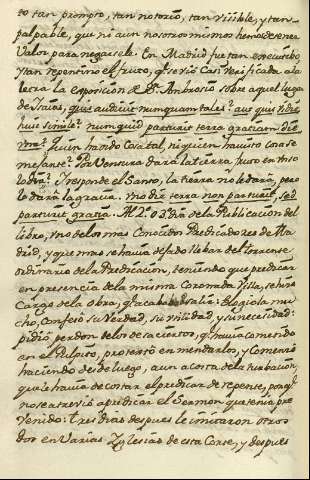 to tan prompto, tan notorio, tan visible, y tan
palpable, que ni aun nosotros mismos hemos de tener
valor para negarsele. En Madrid fue tan executibo,
y tan repentino el fruto, q.e se vió casi verificada a la
letra la exposicion de Sn. Ambrosio sobre aquel lugar
de Isaias, quis audivit umquam tale? aut quis vidit
huic simile? numquid parturit terra gratiam die
una? quien ha oido cosa tal, ni quien ha visto cosa se
mejante? Por ventura dará la tierra fruto en un so
lo dia? I responde el Santo, la tierra no le dará, pero
le dará la gracia. una die terra non parturit, sed
parturit gratia. Al 2.o ó 3.o dia de la Publicacion del
libro, uno de los mas conocidos Predicadores de Ma
drid, y que mas se havia dejado llebar del torrente
ordinario de la Predicacion, teniendo que predicar
en presencia de la misma Coronada Villa, se hizo
cargo de la obra, q.e acababa de salir: Elogiola mu
cho, confesó su verdad, su utilidad, y su necesidad:
pidió perdon de los desaciertos, q.e havia cometido
en el Pulpito, protestó enmendarlos, y comenzó
haciendo desde luego, aun a costa de la turbacion,
que le havia de costar el predicar de repente, porq.e
no se atrevió a predicar el Sermon que tenia pre
venido: tres dias despues le imitaron otros
dos en varias Iglesias de esta Corte, y despues